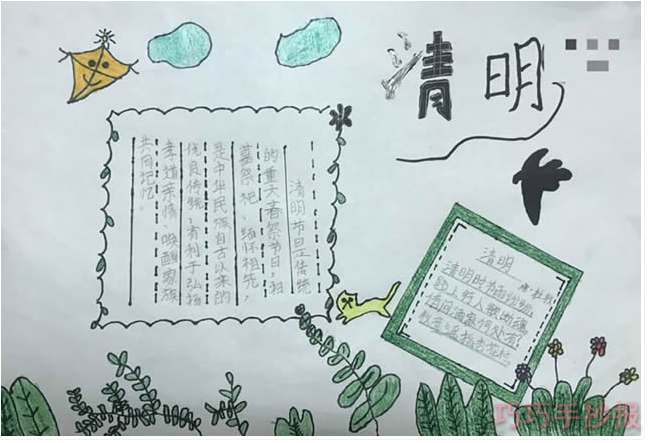 清明
清明节是传统
的重大春祭节日，扫
墓祭祀、缅怀祖先，
是中华民族自古以来的
优良传统，有利于弘扬
孝道亲情、唤醒家族
共同记忆。
清明
唐·杜牧
清明时节雨纷纷，
路上行人欲断魂。
借问酒家何处有？
牧童遥指杏花村。
巧巧手抄报